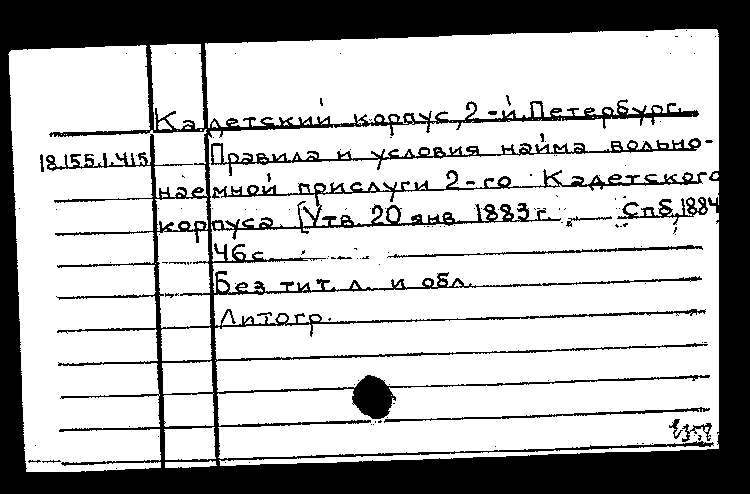 Кадетский корпус, 2-й. Петербург.
18.155.1.415 Правила и условия найма вольно-
наемной прислуги 2-го Кадетского
корпуса. [Утв. 20 янв. 1883 г. Спб, 1884
46 с.
Без тит. л. и обл.
Литогр.